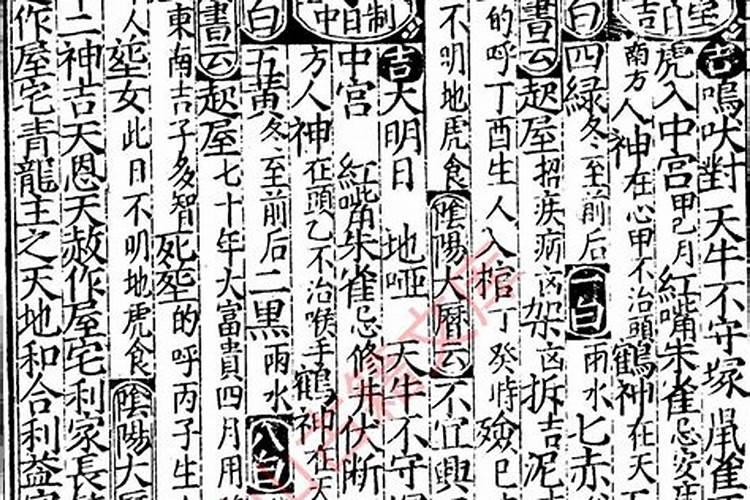 吉 鳴吠對 天牛不守塚 鼠雀
虎入中宮甲己月紅嘴朱雀忌安
吉 南方人神在心甲不治頭鶴神在天
白四綠冬至前后一白雨水七赤
書云起屋招疾病凶架凶拆吉泥
的呼丁酉生人入棺丁癸時殮巳
不明地虎食陰陽大曆云不宜興
吉大明日 地啞 天牛不守
中宮 紅嘴朱雀忌修井伏断
制日中方人神在頭乙不治喉手鶴神在天
白五黃冬至前后二黑雨水八白
書云起屋七十年大富貴四月用
東南吉子多智死𡊨的呼丙子生
人𡊨女此日不明地虎食陰陽大曆
十二神吉天恩天赦作屋宅利家長
作屋宅青龍主之天地和合利益